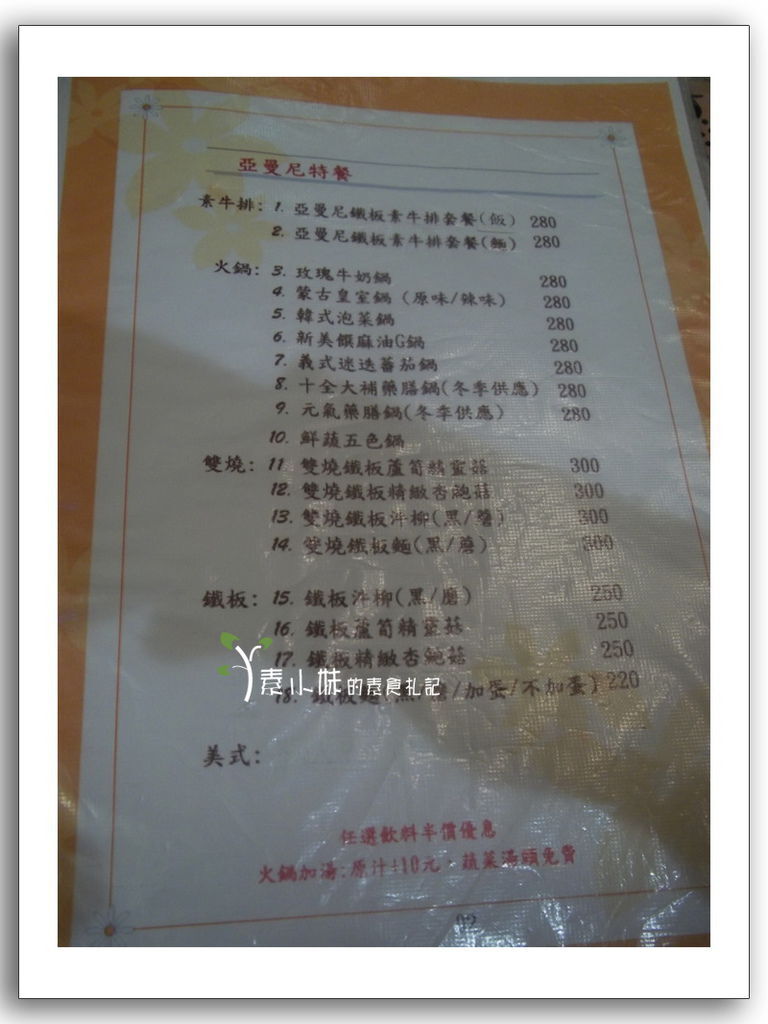 亞曼尼特餐
素牛排: 1. 亞曼尼鐵板素牛排套餐(飯) 280
2. 亞曼尼鐵板素牛排套餐(麵) 280
火鍋: 3. 玫瑰牛奶鍋 280
4. 蒙古皇室鍋 (原味/辣味) 280
5. 韓式泡菜鍋 280
6. 新美饌麻油G鍋 280
7. 義式迷迭蕃茄鍋 280
8. 十全大補藥膳鍋(冬季供應) 280
9. 元氣藥膳鍋(冬季供應) 280
10. 鮮蔬五色鍋
雙燒: 11. 雙燒鐵板蘆筍精靈菇 300
12. 雙燒鐵板精緻杏鮑菇 300
13. 雙燒鐵板洋柳(黑/蘑) 300
14. 雙燒鐵板麵(黑/蘑) 300
鐵板: 15. 鐵板洋柳(黑/磨) 250
16. 鐵板蘆筍精靈菇 250
17. 鐵板精緻杏鮑菇 250
18. 鐵板麵(黑/蘑/加蛋/不加蛋) 220
素小妹的素食札記
美式:
任選飲料半價優惠
火鍋加湯:原汁+10元,蔬菜湯頭免費
02